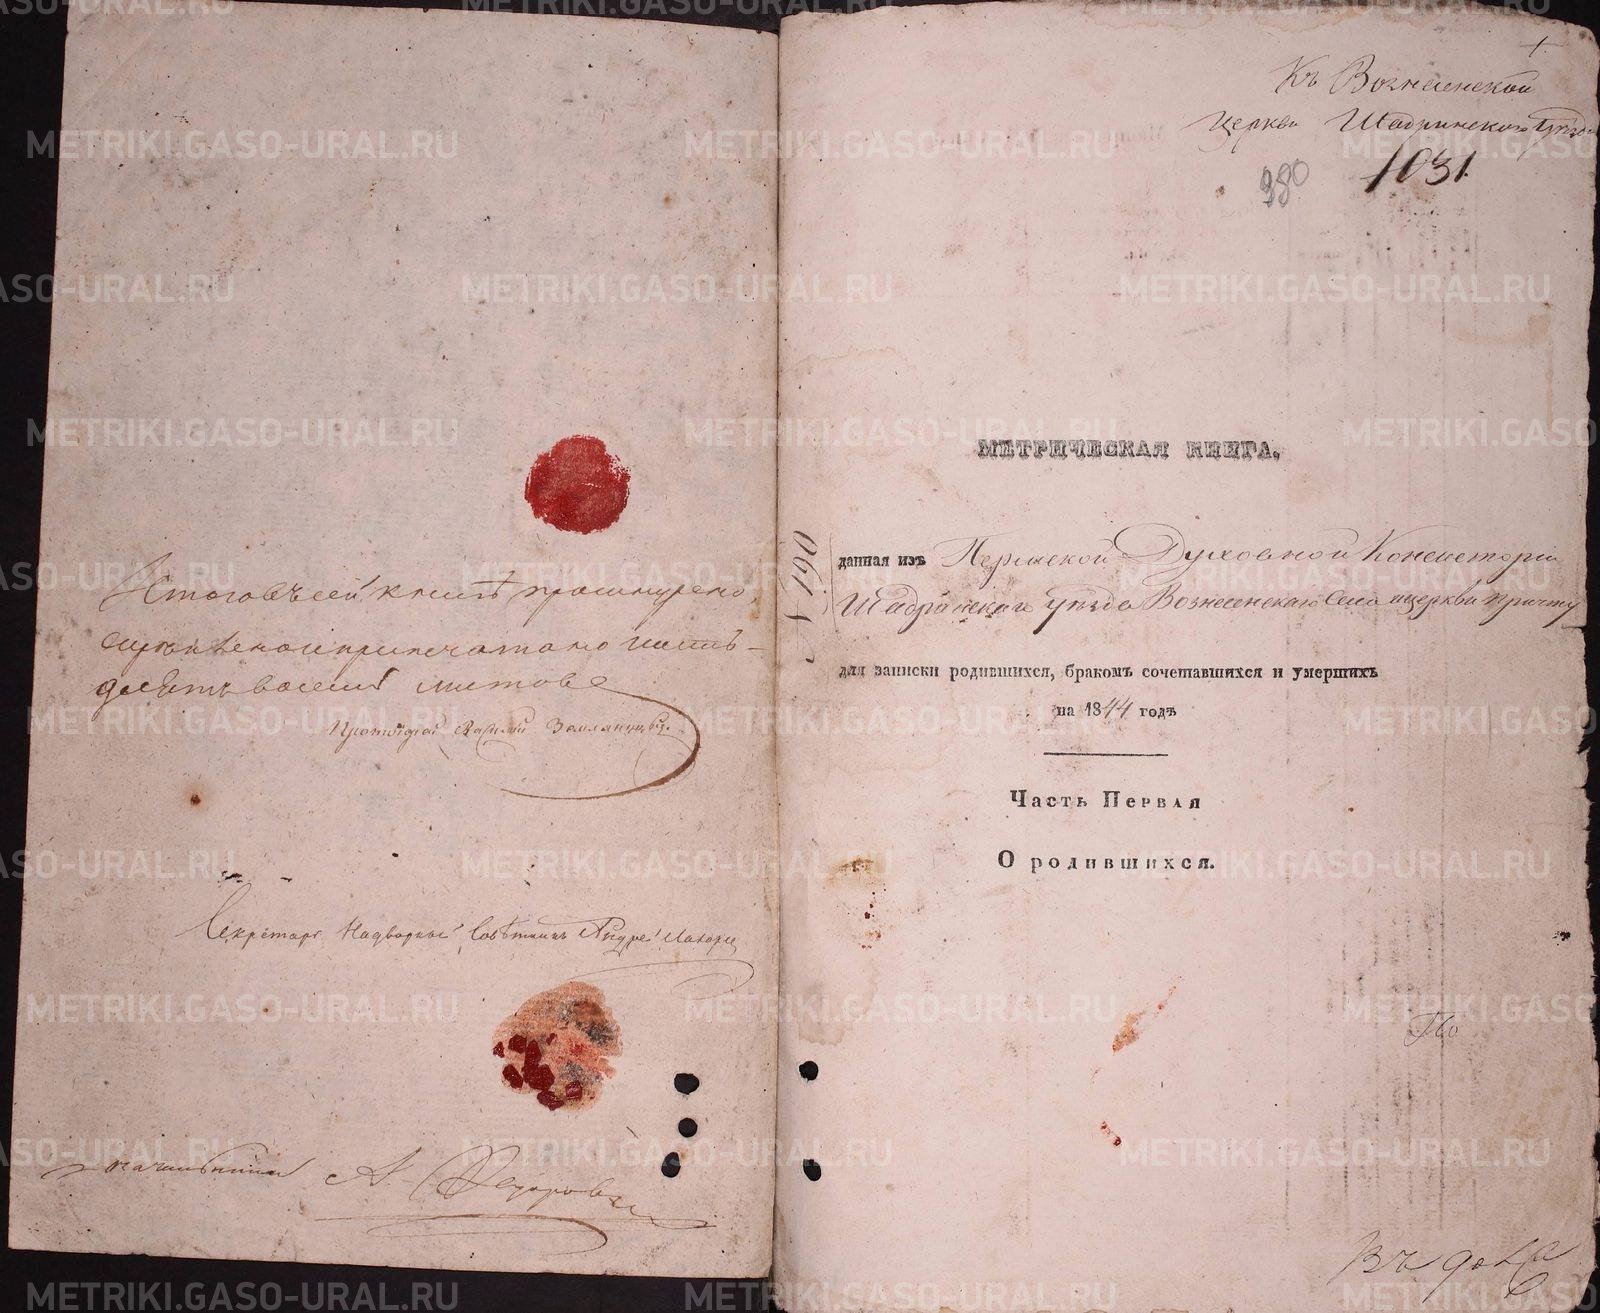 Итого въ сей книгѣ прошнуровано,
скрѣплено и припечатано шесть-
десять восемь листовъ
Протоіерей Василій
Секретарь Надворный Совѣтникъ Андрей
А. Федоровъ
Къ Вознесенской
Церкви Шадринского Уѣзда
380
1031.
МЕТРИЧЕСКАЯ КНИГА,
N 190
данная изъ Пермской Духовной Консисторіи
Шадринского уѣзда Вознесенскаго Села церкви причту
для записки родившихся, бракомъ сочетавшихся и умершихъ
на 1844 годъ
Часть Первая
О родившихся.
METRIKI.GASO-URAL.RU